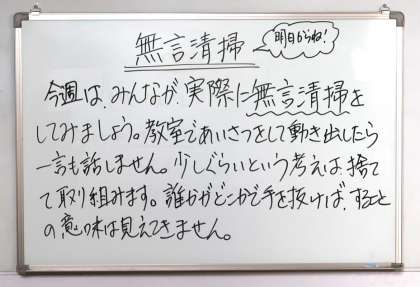 無言清掃
明日からね！
今週は、みんなが、実際に無言清掃を
してみましょう。教室であいさつをして動き出したら
一言も話しません。少しぐらいという考えは捨て
て取り組みます。誰かがどこかで手を抜けば、すること
の意味は見えてきません。